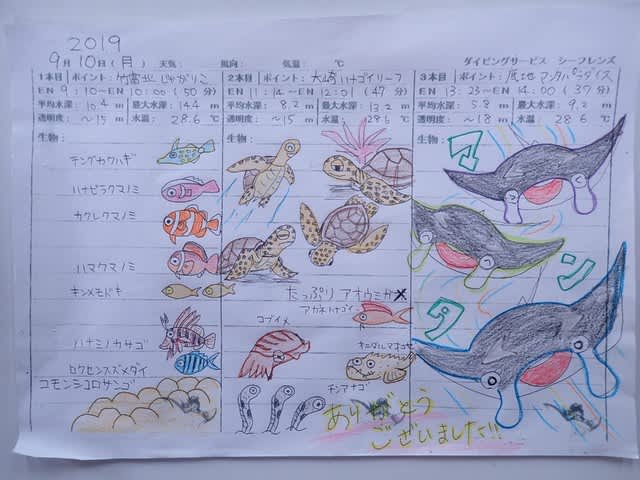 2019
9月10日(月) 天気: 風向: 気温: ℃ ダイビングサービス シーフレンズ
1本目 ポイント: 竹富北 じゃがりこ
EN 9:10~EN 10:00 (50分)
平均水深: 10.4 m 最大水深: 14.4 m
透明度: ~15 m 水温: 28.6 ℃
生物:
テングカワハギ
ハナビラクマノミ
カクレクマノミ
ハマクマノミ
キンメモドキ
ハナミノカサゴ
ロクセンスズメダイ
コモンシコロサンゴ
2本目 ポイント: 大崎ハナゴイリーフ
EN 11:14~EN 12:01 (47分)
平均水深: 8.2 m 最大水深: 13.2 m
透明度: ~15 m 水温: 28.6 ℃
生物:
たっぷり アオウミガメ
アカネハナゴイ
コブイメ
チンアナゴ
3本目 ポイント: 底地 マンタパラダイス
EN 13:23~EN 14:00 (37分)
平均水深: 5.8 m 最大水深: 9.2 m
透明度: ~18 m 水温: 28.6 ℃
生物:
マ
ン
タ
ありがとう
ございました!!